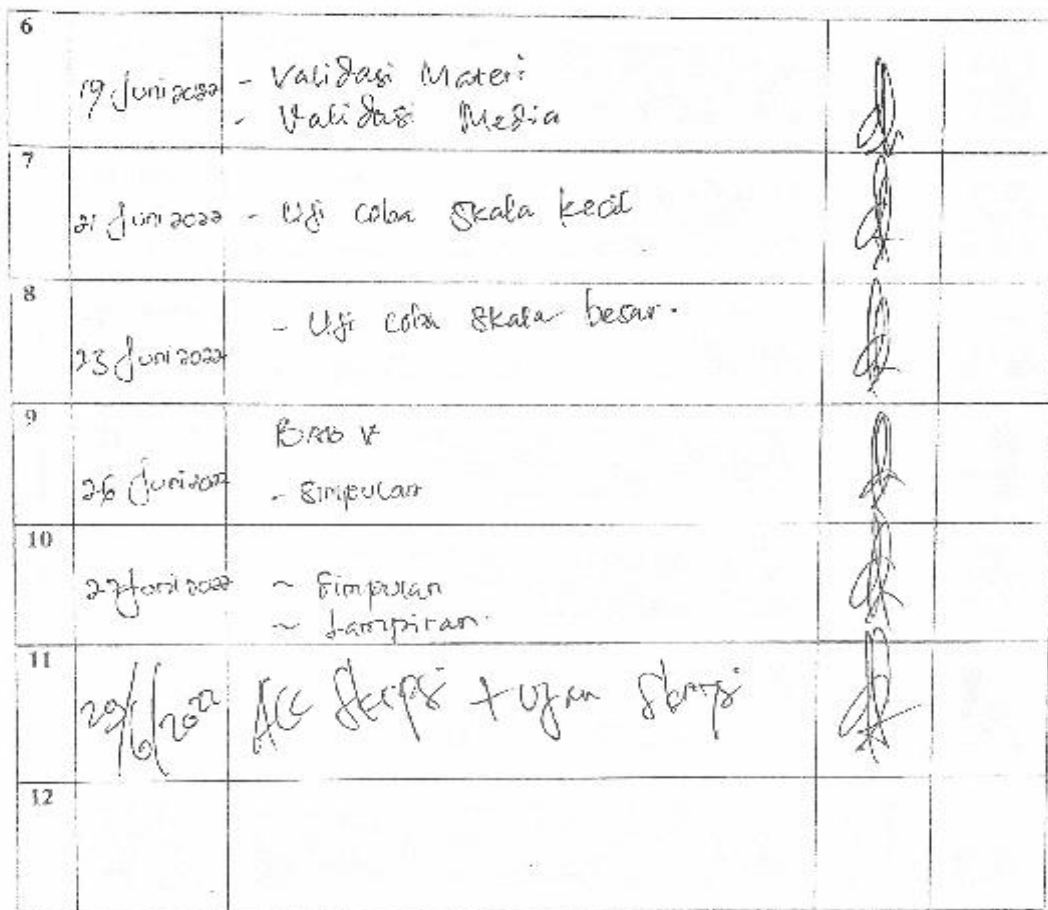 6
19 Juni 2022 - Validasi Materi
- Validasi Media
7
21 Juni 2022 - Uji coba skala kecil
8
- Uji coba skala besar.
23 Juni 2022
9
BAB V
26 Juni 2022 - Simpulan
10
27 Juni 2022 ~ Simpulan
~ Lampiran
11
29/6/2022 ACC Skripsi + ujian Skripsi
12